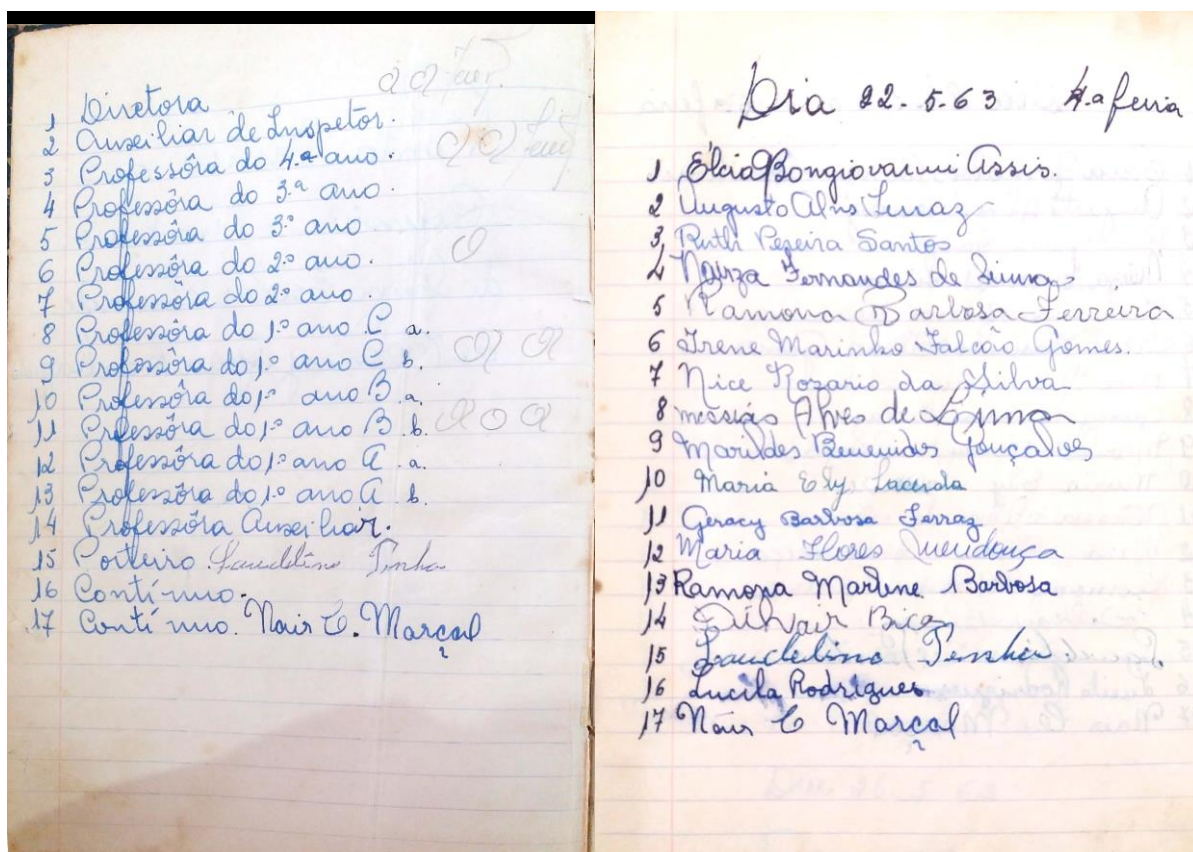 1 Diretora
2 Auxeiliar de Inspetor.
3 Professôra do 4.º ano.
4 Professôra do 3.º ano.
5 Professôra do 3º ano
6 Professôra do 2º ano.
7 Professôra do 2º ano.
8 Professôra do 1º ano C a.
9 Professôra do 1º ano C b.
10 Professôra do 1º ano B a.
11 Professôra do 1º ano B b.
12 Professôra do 1º ano A a.
13 Professôra do 1º ano A b.
14 Professôra Auxeiliar.
15 Porteiro Laudelino
16 Contínuo.
17 Contínuo. Nair C. Marçal
Dia 22-5-63 4.a feira
1 Élcia Bongiovanni Assis.
2 Augusto Alves Ferraz
3 Ruth Pereira Santos
4 Fernandes de
5 Ramona Barbosa Ferreira
6 Irene Marinho Falcão Gomes.
7 Nice Rozario da Silva
8 messias Alves de Lima
9 Marildes Benevides Gonçalves
10 Maria Ely Lacerda
11 Geracy Barbosa Ferraz
12 Maria Flores Mendonça
13 Ramona Marlene Barbosa
14
15 Laudelino
16 Lucila Rodrigues
17 Nair C Marçal